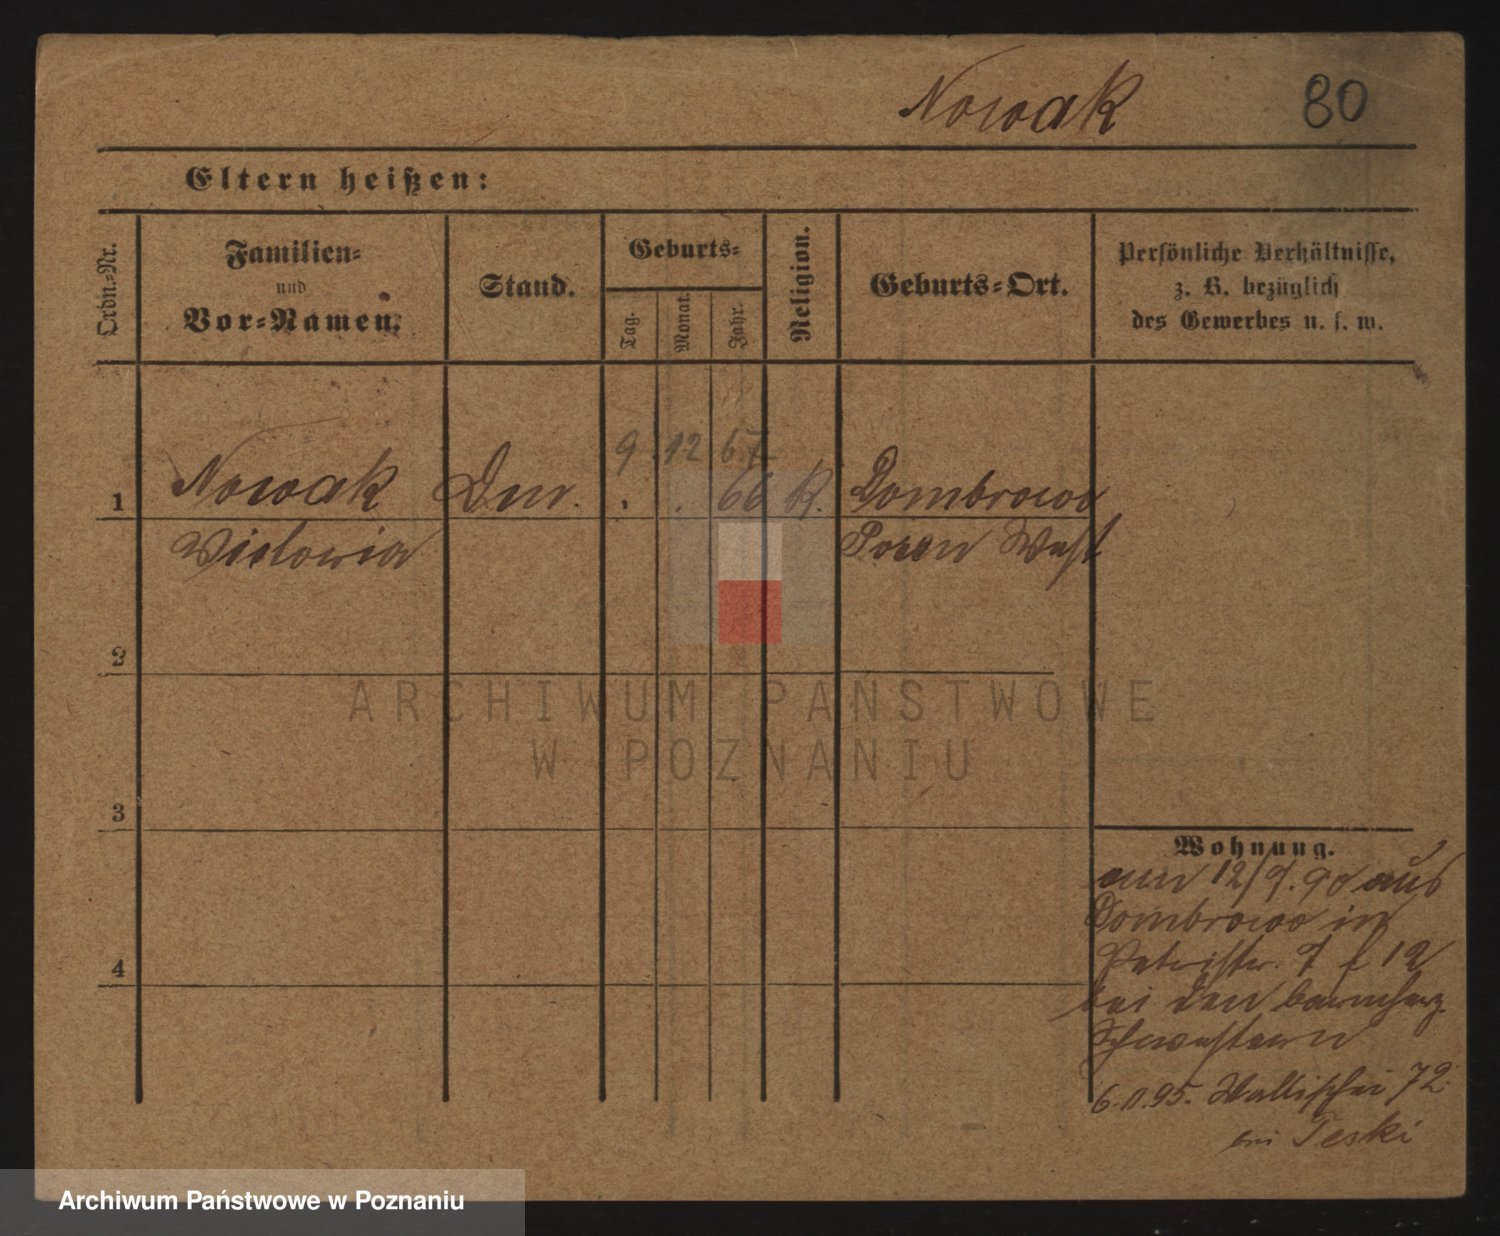 Nowak 80
Eltern heißen:
Ordn.-Nr.
Familien-
und
Vor-Namen.
Stand.
Geburts-
Tag.
Monat.
Jahr.
Religion.
Geburts-Ort.
Persönliche Verhältnisse,
z. B. bezüglich
des Gewerbes u. s. w.
9 12 67
1 Nowak . . 66 K. Dombrowo
Victoria Posen West
2
3
4
Wohnung.
am 12/9. 90 aus
Dombrowo in
Petristr. 12
bei den barmherz.
Schwestern
6.11.95. Wallischei 72.
bei Teski
ARCHIWUM PAŃSTWOWE
W POZNANIU
Archiwum Państwowe w Poznaniu